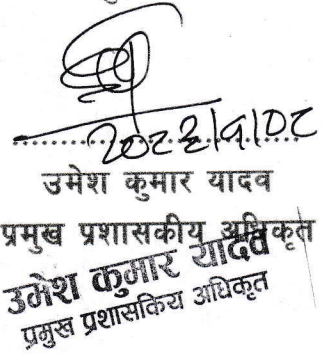 उमेश कुमार यादव
प्रमुख प्रशासकीय अधिकृत
उमेश कुमार यादव
प्रमुख प्रशासकिय अधिकृत